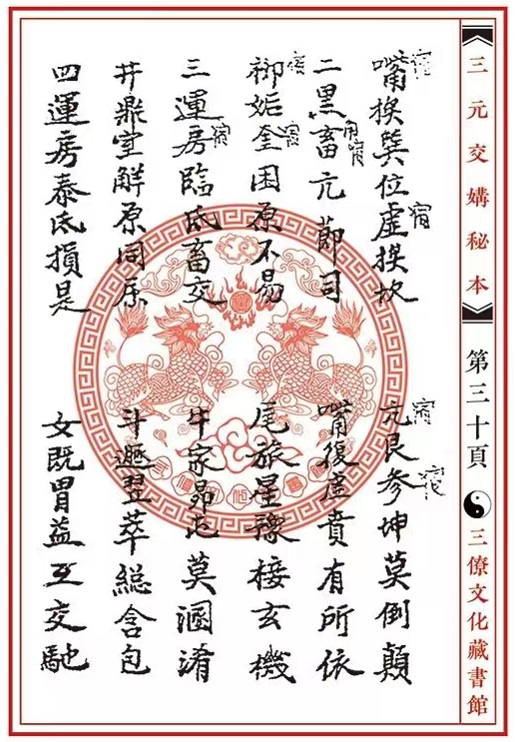 三元交媾秘本
第三十頁
三僚文化藏書館
嘴挨巽位虛挨坎 亢艮參坤莫倒顛
宿 宿 宿 宿
二黑畜亢節司 嘴復虛賁有所依
角宿
柳姤奎困原不易 尾旅星豫接玄機
宿 宿
三運房臨氐畜交 牛家昴屯莫溷淆
宿
井鼎室解原同 斗遯翌萃總含包
四運房泰氐損是 女既胃益互交馳